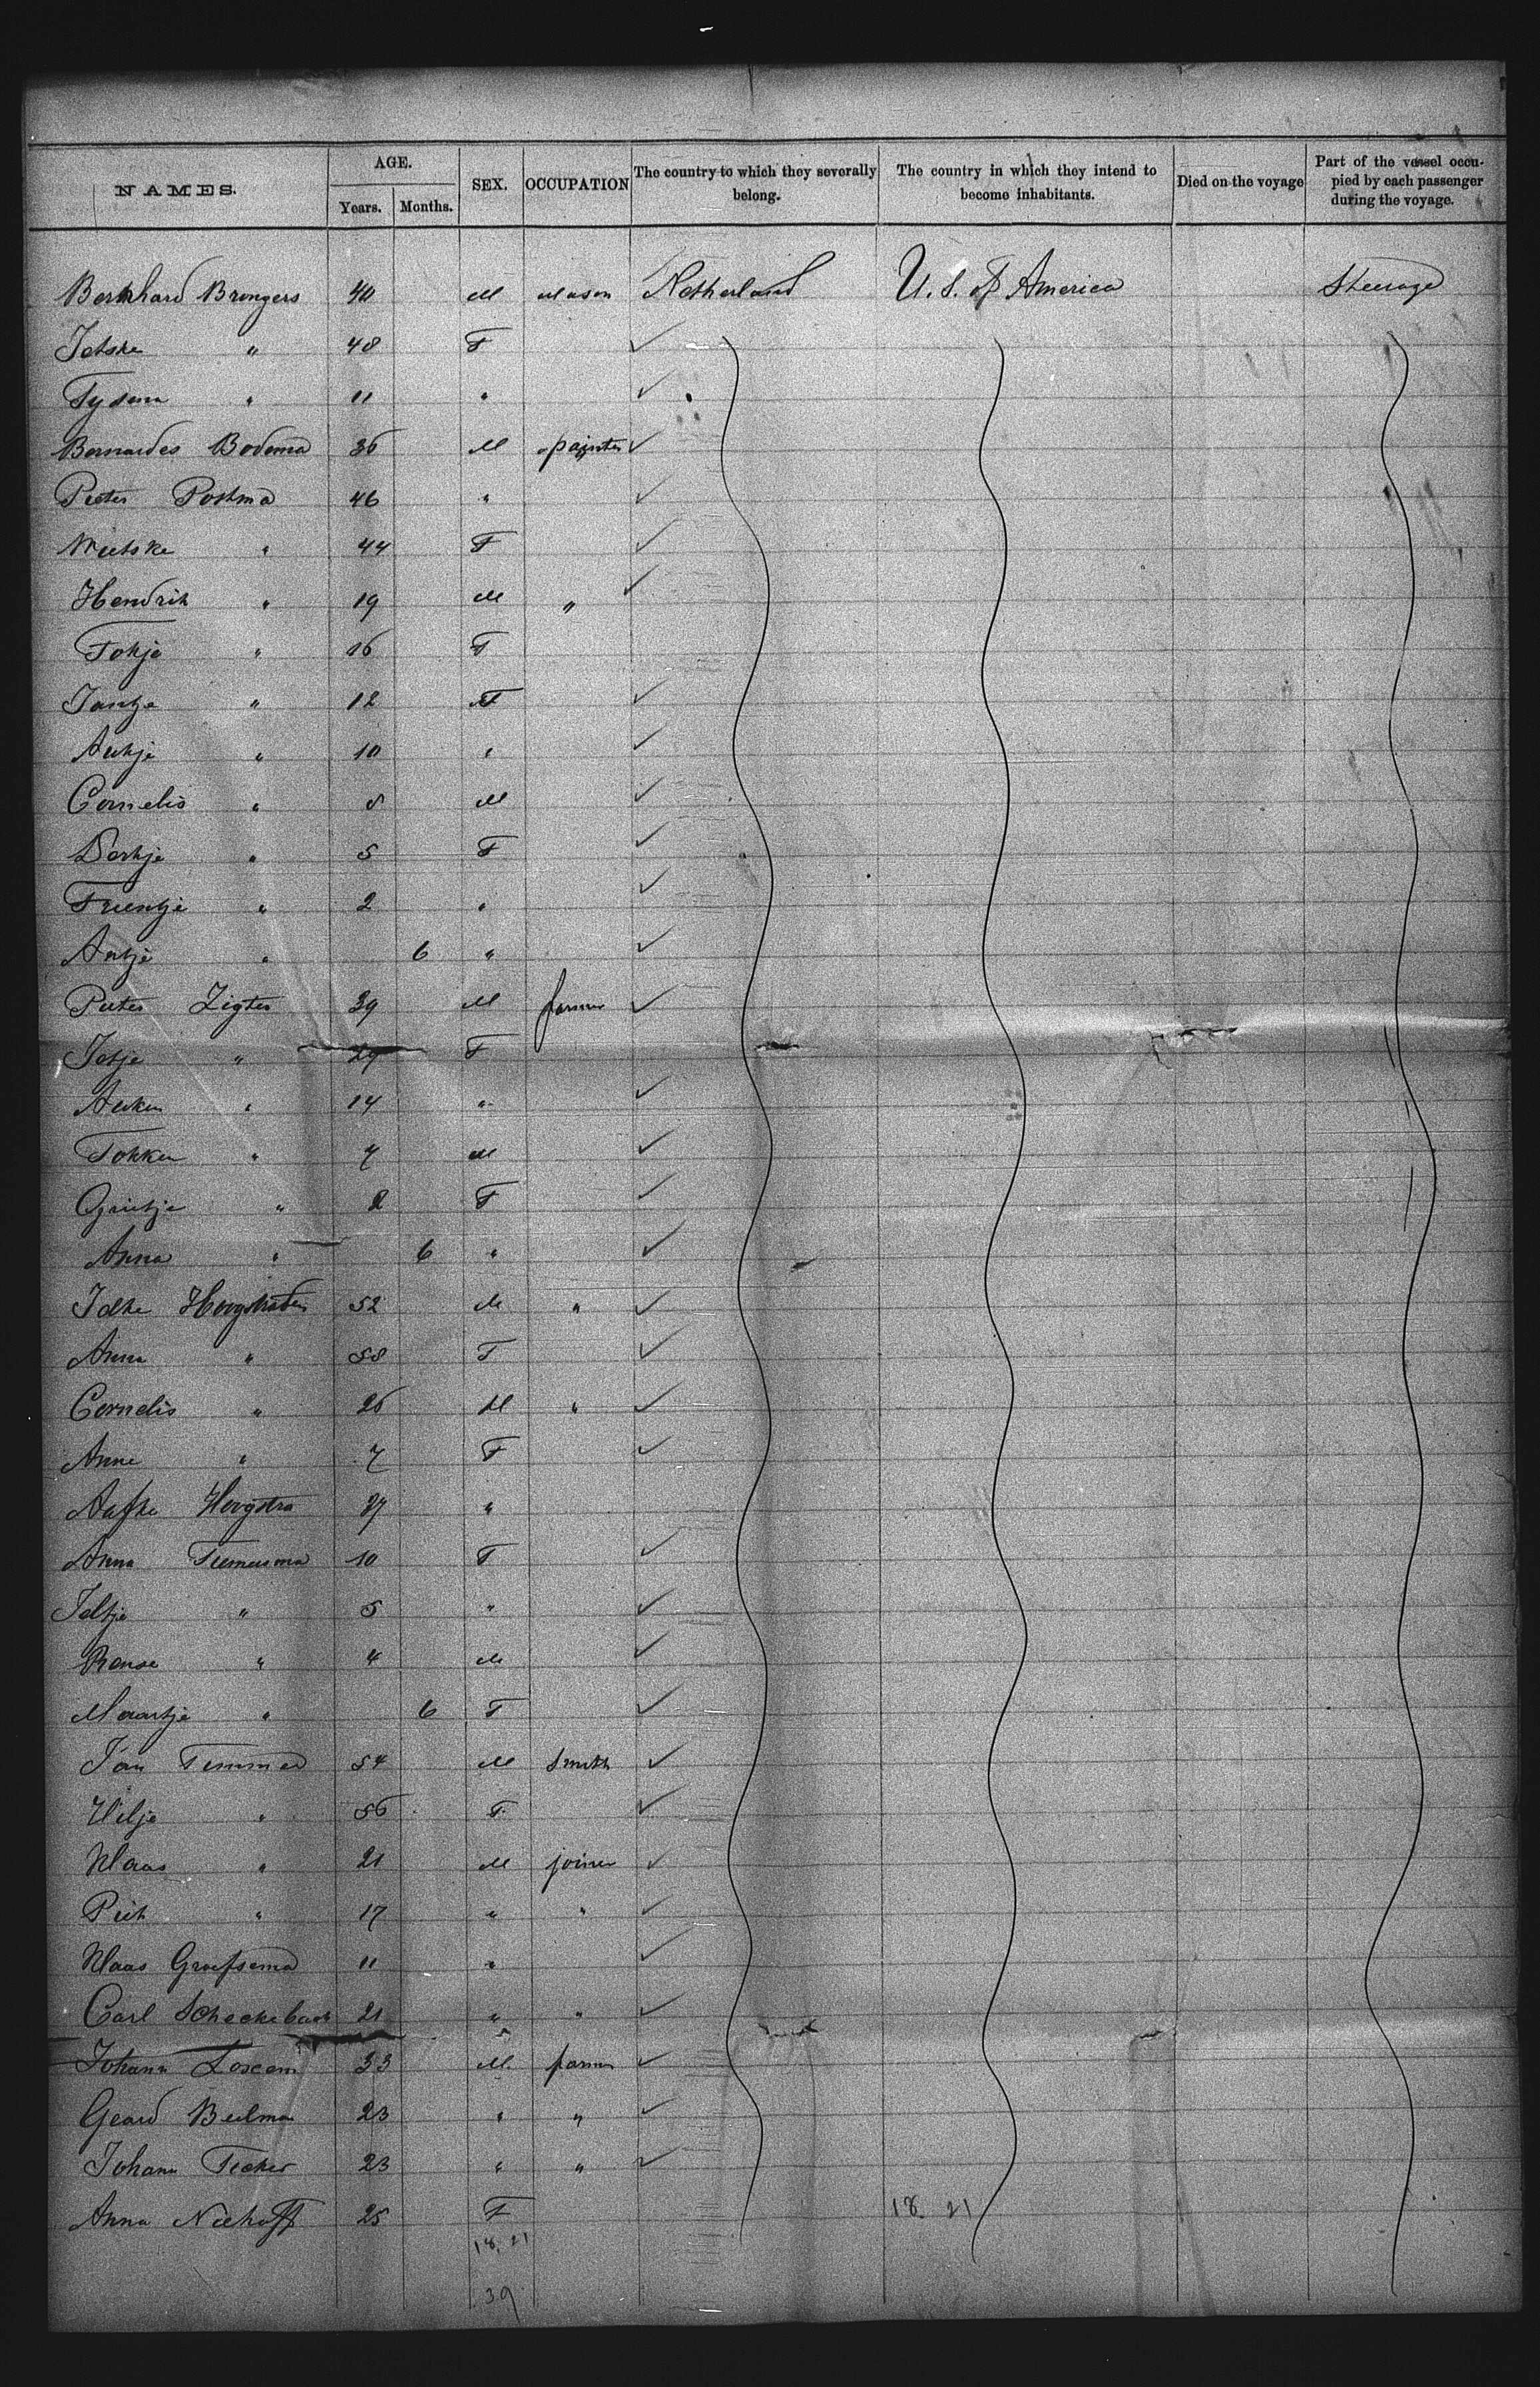 NAMES. AGE. Years. Months. SEX. OCCUPATION The country to which they severally belong. The country in which they intend to become inhabitants. Died on the voyage Part of the vessel occupied by each passenger during the voyage.
Bernhard Brongers 40 M Mason Netherland U. S. of America Steerage
Jetske " 48 F
" 11 "
Bernardes Bodema 36 M painter
Pieter Postma 46 "
Wietske " 44 F
Hendrik " 19 M "
Tokje " 16 F
Jantje " 12 F
Aukje " 10 "
Cornelis " 8 M
Dorkje " 5 F
Trientje " 2 "
Antje " 6 "
Pieter Zigter 39 M farmer
Jetje " 29 F
Auken " 14 "
Tokken " 7 M
Grietje " 2 F
Anna " 6 "
Idke 52 M "
Anna " 58 F
Cornelis " 26 M "
Anne " 7 F
Aafke Hoogstra 27 "
Anna 10 F
Jeltje " 5 "
Rense " 4 M
Maartje " 6 F
Jan Timmer 54 M Smith
Hilje " 56 F
Klaas " 21 M joiner
Piet " 17 " "
Klaas Groefsema 11 "
Carl Scheckebach 21 " "
Johann 33 M. farmer
Geard Beelman 23 " "
Johann Tecker 23 " "
Anna Niehoff 25 F 18 21
18. 21
39